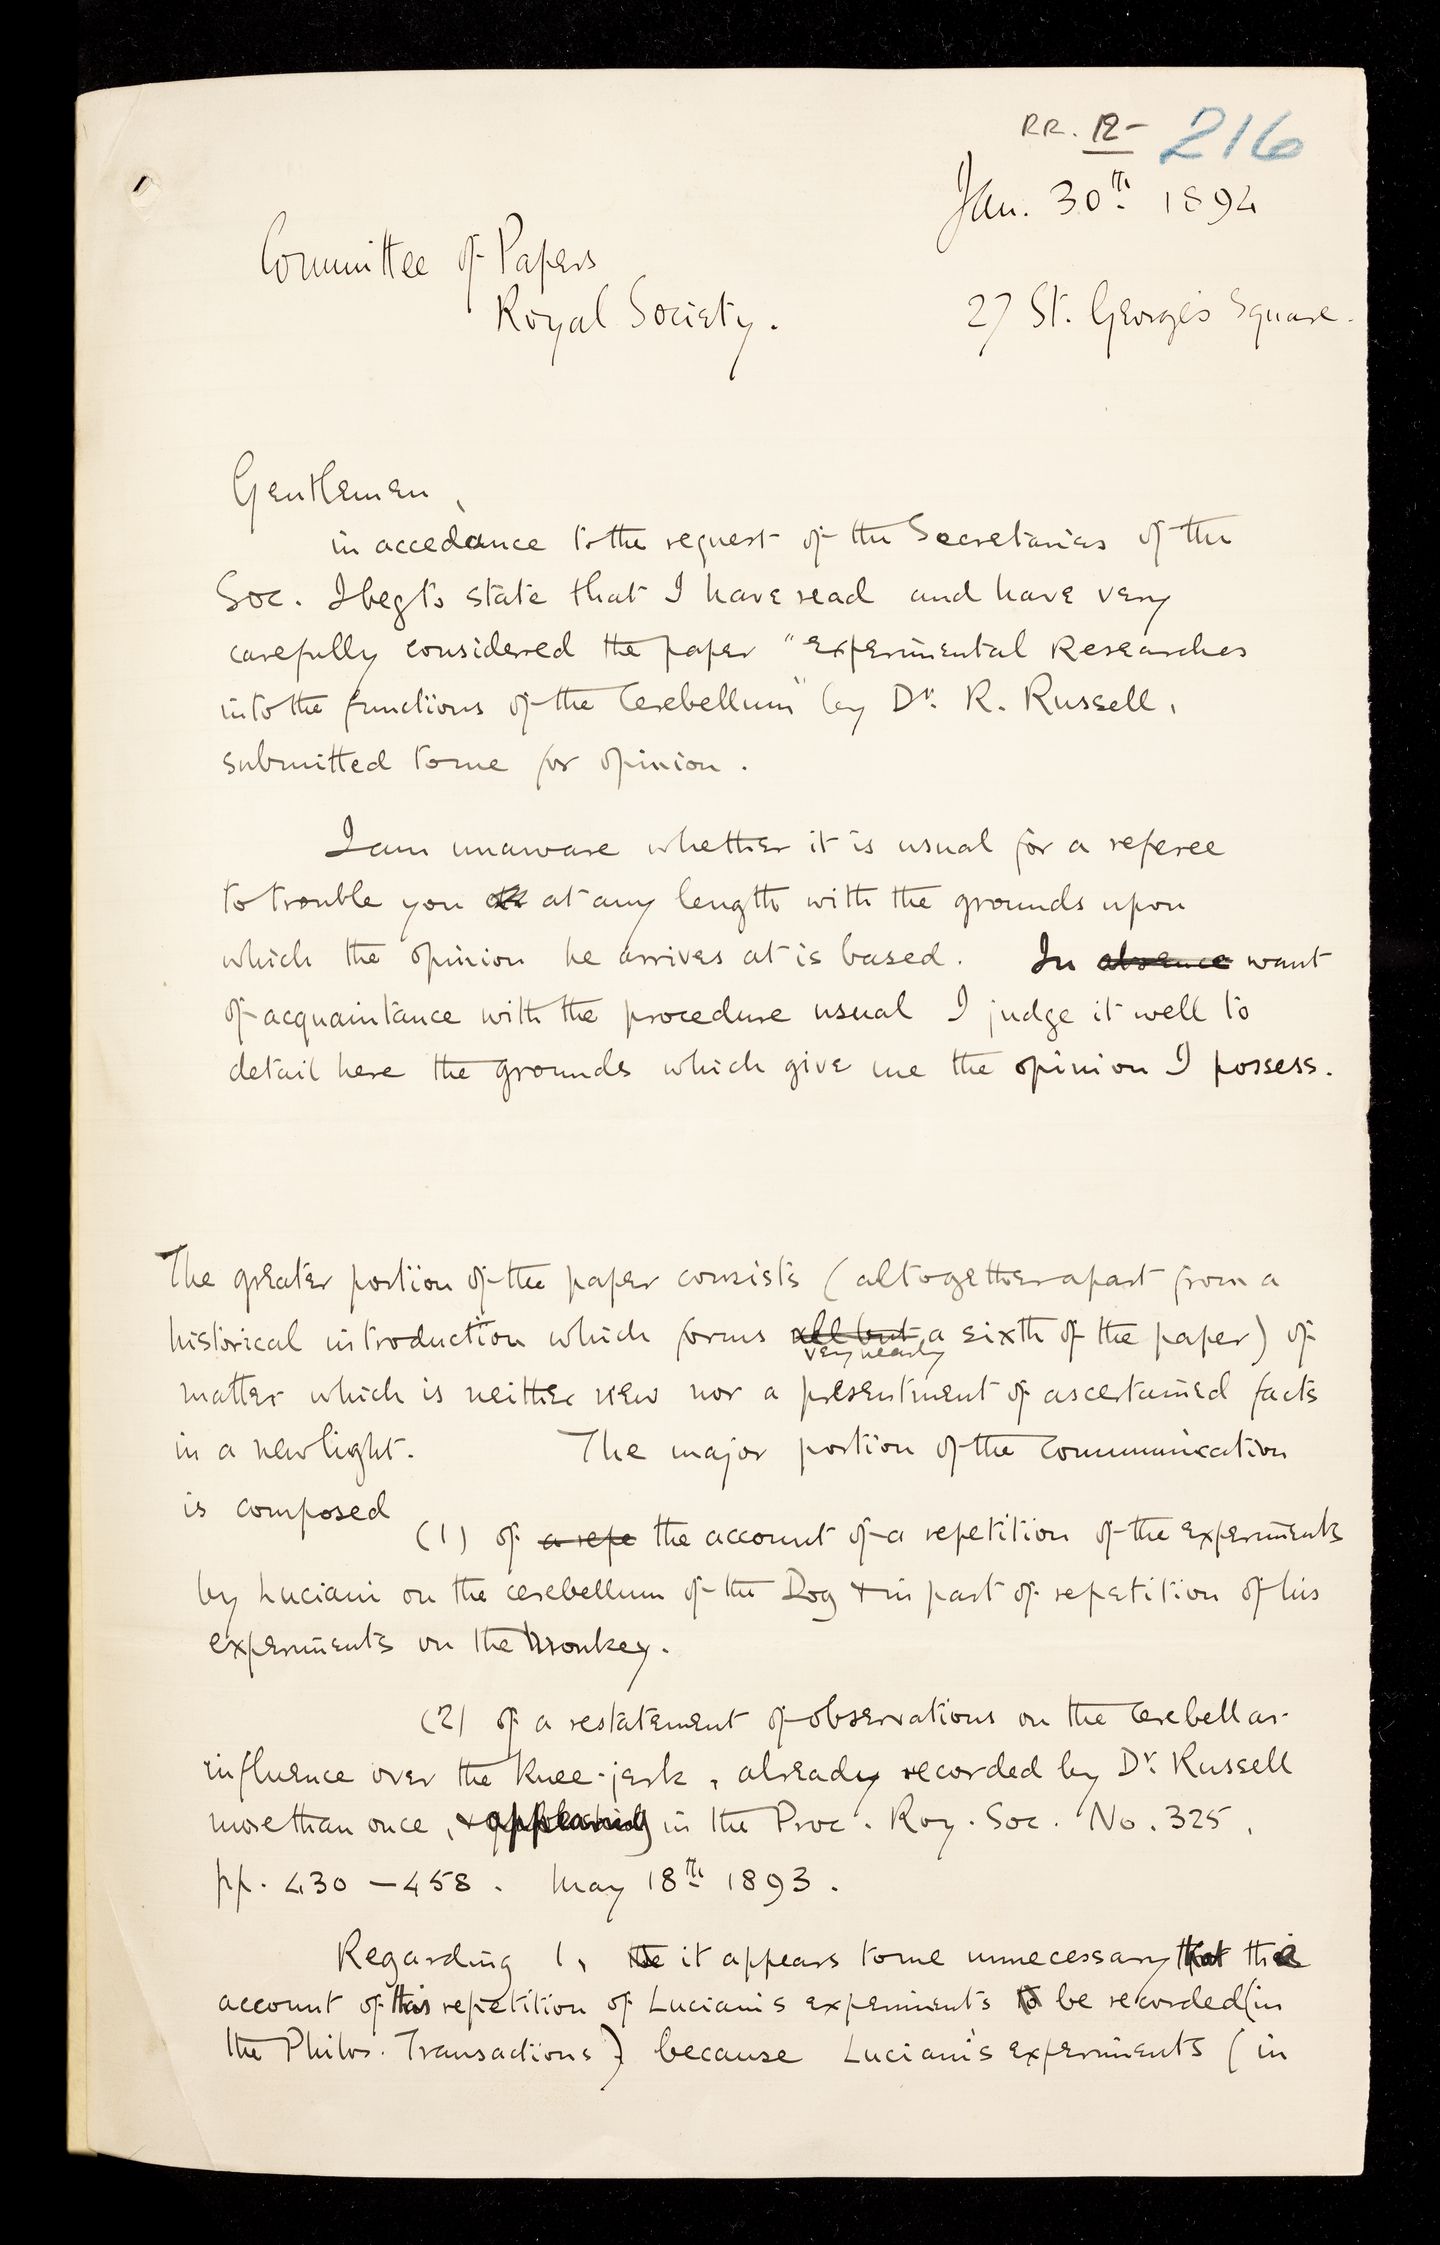 RR. 12- 216
Jan. 30th. 1894
Committee of Papers
Royal Society.
27 St. George's Square.
Gentlemen,
in accedance to the request of the Secretaries of the
Soc. I beg to state that I have read and have very
carefully considered the paper "Experimental Researches
into the functions of the Cerebellum" by Dr. R. Russell,
submitted to me for opinion.
I am unaware whether it is usual for a referee
to trouble you at any length with the grounds upon
which the opinion he arrives at is based. In absence want
of acquaintance with the procedure usual I judge it well to
detail here the grounds which give me the opinion I possess.
The greater portion of the paper consists (altogether apart from a
historical introduction which forms all but a sixth of the paper) of
very nearly
matter which is neither new nor a presentment of ascertained facts
in a new light. The major portion of the communication
is composed
(1) of a repe the account of a repetition of the experiments
by Luciani on the cerebellum of the Dog & in part of repetition of his
experiments on the Monkey.
(2) of a restatement of observations on the Cerebellar
influence over the knee-jerk, already recorded by Dr. Russell
more than once, & appearing in the Proc. Roy. Soc. No. 325,
pp. 430-458. May 18th 1893.
Regarding 1, it appears to me unnecessary that the
account of this repetition of Luciani's experiments to be recorded (in
the Philos. Transactions) because Luciani's experiments (in